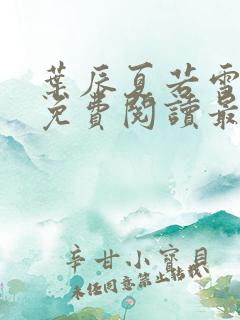 葉辰夏若雪
免費閱讀最
辛甘小寶貝
未任同意禁止轉載